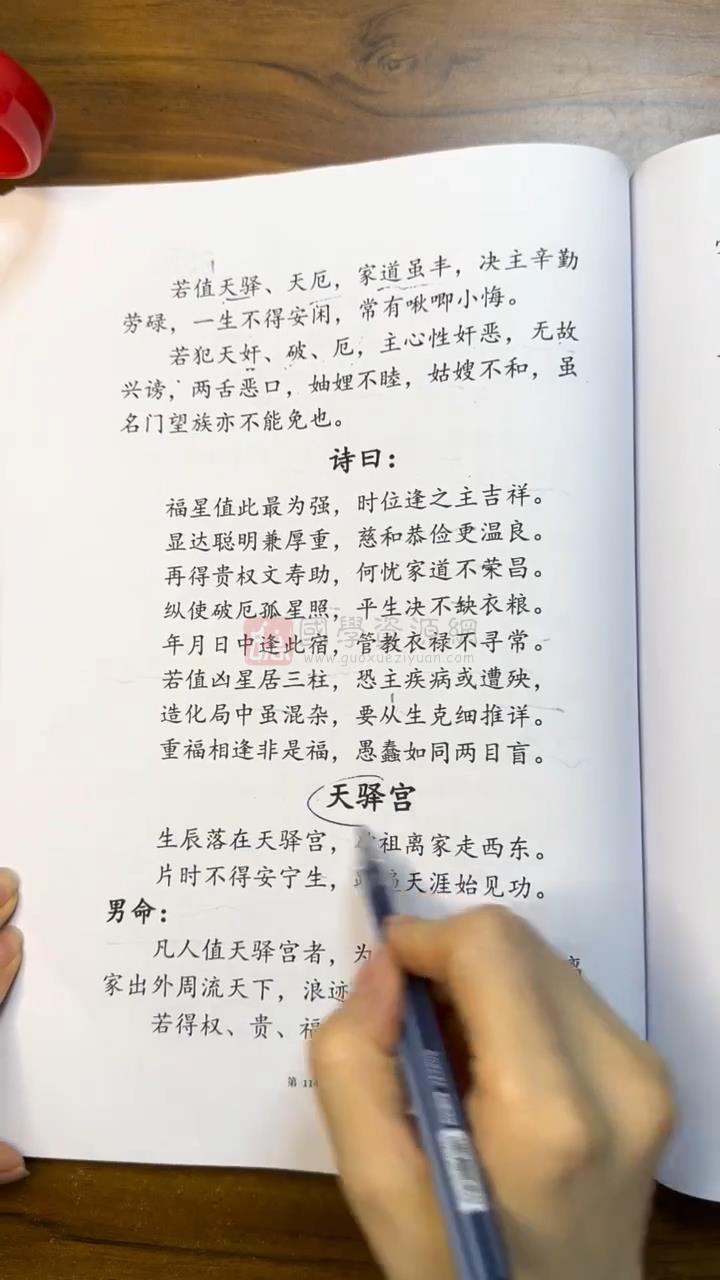 若值天驿、天厄，家道虽丰，决主辛勤
劳碌，一生不得安闲，常有啾唧小悔。
若犯天奸、破、厄，主心性奸恶，无故
兴谤，两舌恶口，妯娌不睦，姑嫂不和，虽
名门望族亦不能免也。
诗曰：
福星值此最为强，时位逢之主吉祥。
显达聪明兼厚重，慈和恭俭更温良。
再得贵权文寿助，何忧家道不荣昌。
纵使破厄孤星照，平生决不缺衣粮。
國學資源網
年月日中逢此宿，管教衣禄不寻常。
www.guoxueziyuan.com
若值凶星居三柱，恐主疾病或遭殃，
造化局中虽混杂，要从生克细推详。
重福相逢非是福，愚蠢如同两目盲。
天驿宫
生辰落在天驿宫，祖离家走西东。
片时不得安宁生，天涯始见功。
男命：
凡人值天驿宫者，为
家出外周流天下，浪迹
若得权、贵、福
第 114